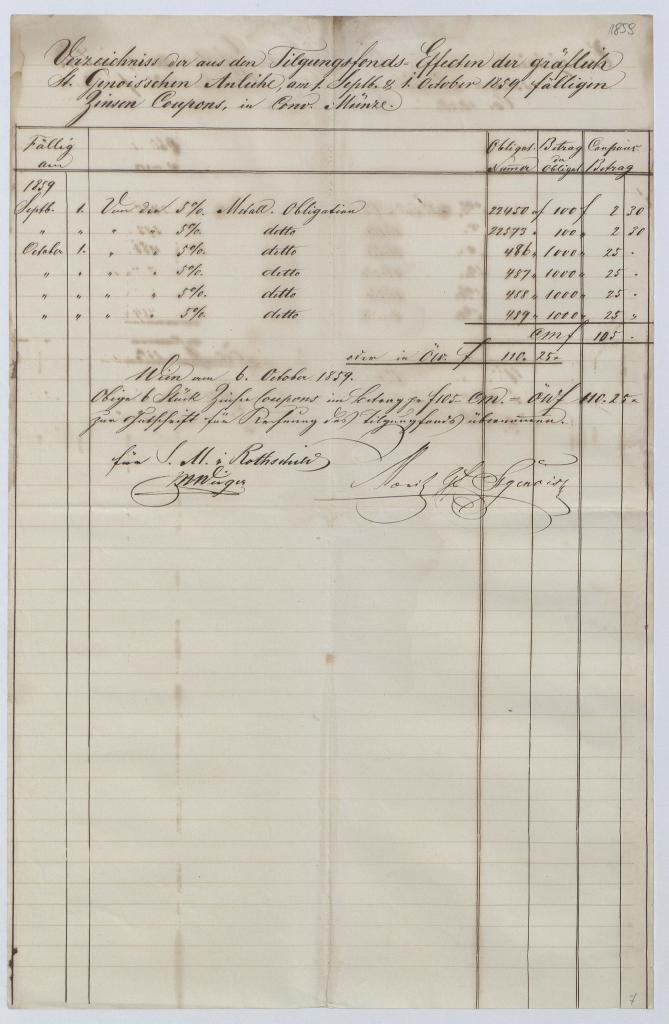 1859
Verzeichniss der aus den Tilgungsfonds-Effecten der gräflich
St. Genois'schen Anleihe, am 1. Septb. & 1. October 1859 fälligen
Zinsen Coupons, in Conv. Münze.
Fällig am Obligat. Nummer Betrag der Obligat Coupons Betrag
1859
Septb. 1. Von der 5%. Metall. Obligation 22450 f 100 f 2 30
" " " " 5%. detto 22573 " 100 " 2 30
October 1. " " 5%. detto 486 " 1000 " 25 "
" " " " 5%. detto 487 " 1000 " 25 "
" " " " 5%. detto 488 " 1000 " 25 "
" " " " 5%. detto 489 " 1000 " 25 "
CM f 105 "
oder in Öw. f 110. 25 "
Wien am 6. October 1859.
Obige 6 Stück Zinsen Coupons im Betrag pr f 105 CM. = ÖW f 110. 25 "
zur Gutschrift für Rechnung des Tilgungsfonds übernommen.
für S. M. v Rothschild
Moriz Gf St genois
7